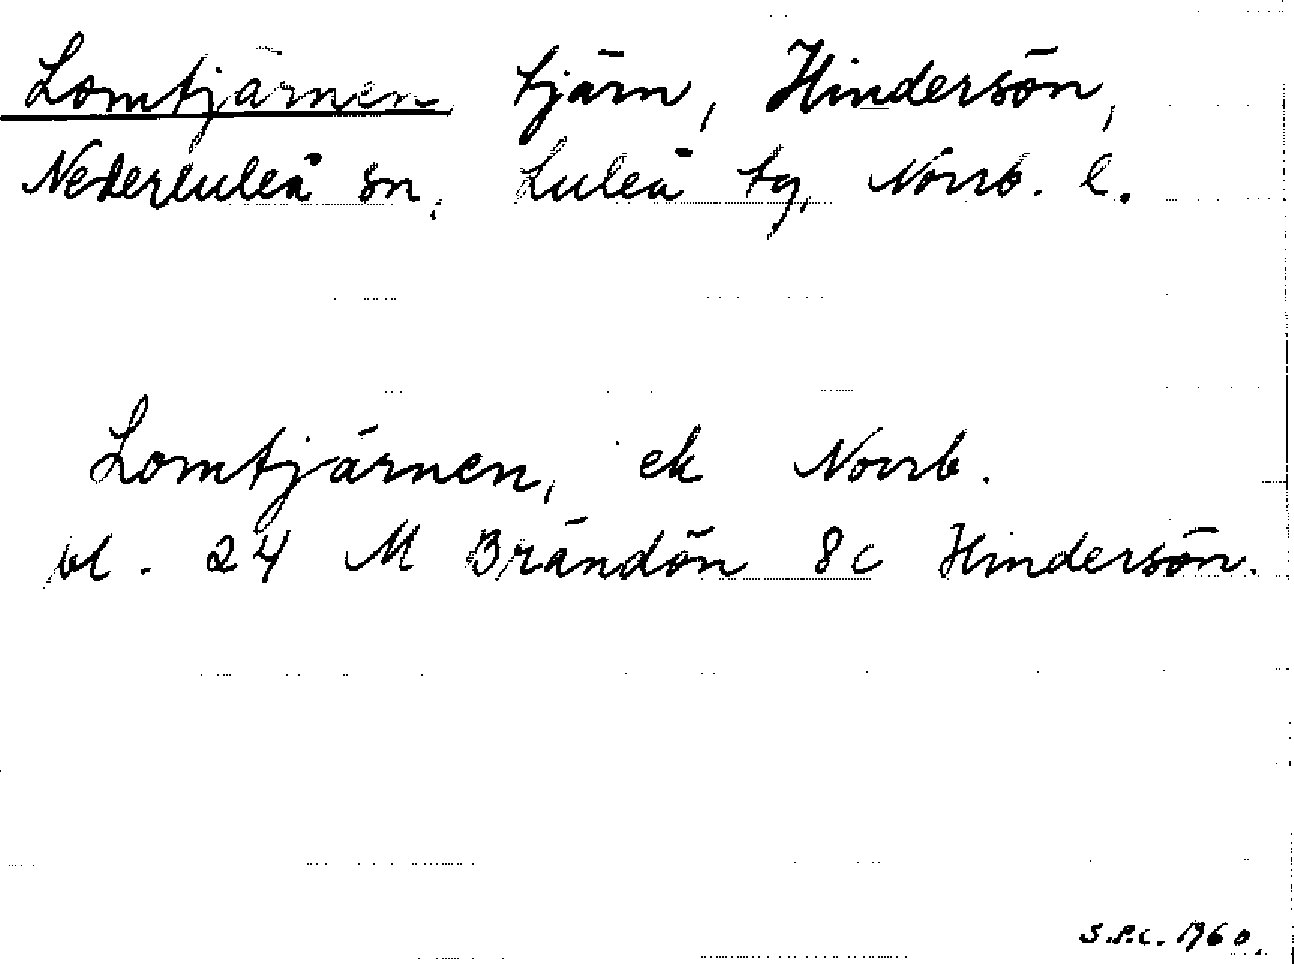 Lomtjärnen tjärn, Hindersön,
Nederluleå sn, Luleå tg, Norrb. l.
Lomtjärnen, ek Norrb.
bl. 24 M Brändön 8c Hindersön.
S.P.C. 1960.